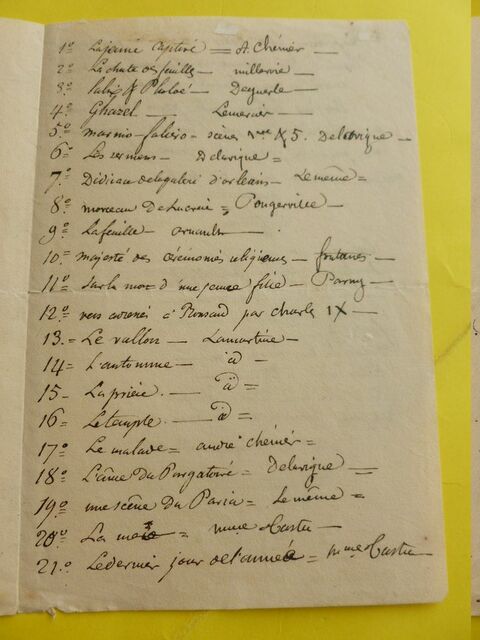 1º La jeune captive = A. Chénier —
2º La chute des feuilles — millevoie —
3º & Pholoé — Deguerle —
4º Ghazel — Lemercier —
5º marino-faliero — scènes & 5. Delavigne —
6º Les — Delavigne =
7º de la galerie d'orléans — Le même =
8º morceau de Lucrèce = Pongerville =
9º La feuille — arnault —
10º majesté des cérémonies religieuses — fontanes
11º Sur la mort d'une jeune fille — Parny
12º vers adressés à Ronsard par charles IX —
13. = Le vallon — Lamartine —
14 = L'automne — id —
15 — La prière. — id =
16 — Le temple — id =
17º Le malade = andré chénier =
18º L'âme du Purgatoire = Delavigne =
19º une scène du Paria = Le même =
20º La = mme Tastu —
21.º Le dernier jour de l'année = mme Tastu —